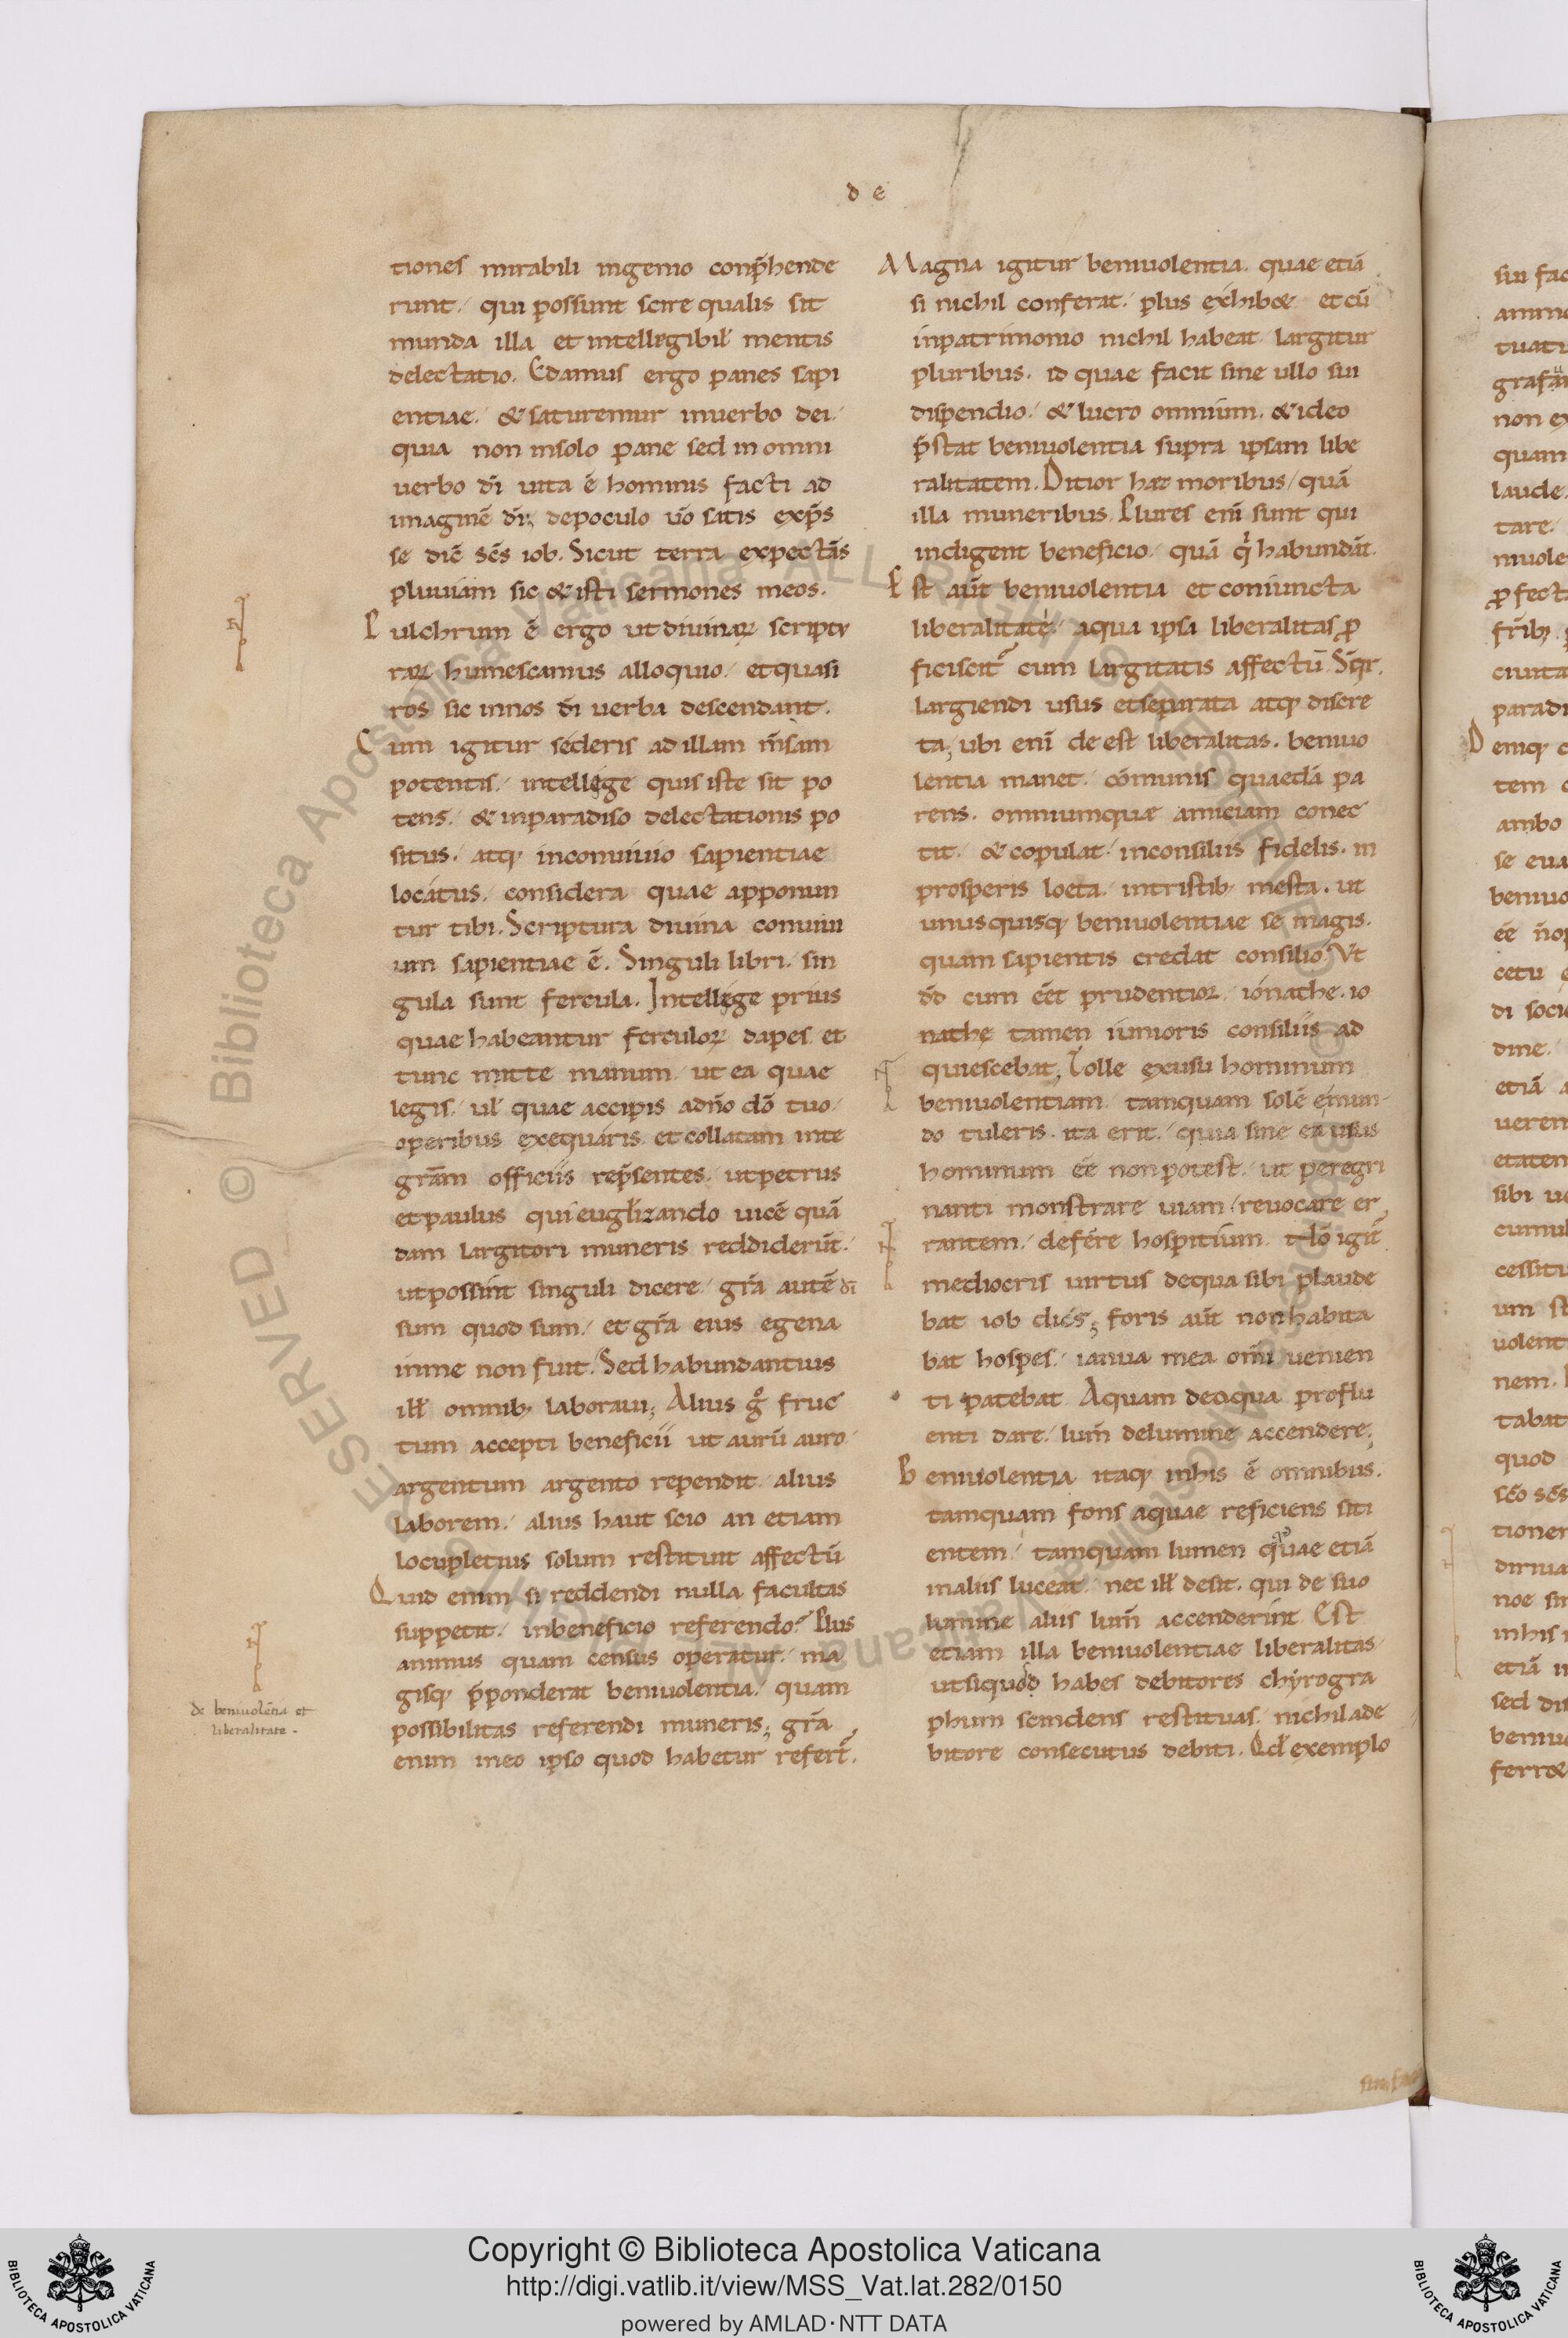 d e
tiones mirabili ingenio conp̄hende
runt. qui possunt scire qualis sit
munda illa et intellegibil' mentis
delectatio. Edamus ergo panes sapi
entiae. & saturemur inuerbo dei.
quia non insolo pane sed in omni
uerbo dī uita ē hominis facti ad
imaginē dī; depoculo ūo satis exp̄s
se diē scs̄ iob. Sicut terra expectās
pluuiam sic & isti sermones meos.
Pulchrum ē ergo ut diuinaꝝ scriptu
raꝝ humescamus alloquio. et quasi
ros sic innos dī uerba descendant.
Cum igitur sederis ad illam m̄sam
potentis. intellege quis iste sit po
tens. & inparadiso delectationis po
situs. atq; inconuiuio sapientiae
locatus. considera quae apponun
tur tibi. Scriptura diuina conuiui
um sapientiae ē. Singuli libri. sin
gula sunt fercula. Intellege prius
quae habeantur ferculoꝝ dapes. et
tunc mitte manum. ut ea quae
legis. ul' quae accipis adn̄o dō tuo.
operibus exequaris. et collatam inte
gram̄ officiis rep̄sentes. ut petrus
et paulus qui euḡlizando uicē quā
dam largitori muneris reddiderūt.
ut possint singuli dicere. gr̄a autē dī
sum quod sum. et gr̄a eius egena
inme non fuit. Sed habundantius
ill' omnib; laboraui; Alius g° fruc
tum accepti beneficii ut aurū auro.
argentum argento rependit. alius
laborem. alius haut scio an etiam
locupletius solum restituit affectū
Quid enim si reddendi nulla facultas
suppetit. inbeneficio referendo? Plus
animus quam census operatur. ma
gisq; p̄ponderat beniuolentia. quam
possibilitas referendi muneris; gr̄a
enim ineo ipso quod habetur refert̄.
de beniuolētia et
liberalitate.
Magna igitur beniuolentia. quae etiā
si nichil conferat. plus exhib&. et cū
inpatrimonio nichil habeat. largitur
pluribus. id quae facit sine ullo sui
dispendio. & lucro omnium. & ideo
p̄stat beniuolentia supra ipsam libe
ralitatem. Ditior haec moribus. quā
illa muneribus. Plures enī sunt qui
indigent beneficio. quā q̇ habundāt.
Est aūt beniuolentia et coniuncta
liberalitate. a qua ipsa liberalitas ꝓ
ficiscit̄ cum largitatis affectū. Sq̄r.
largiendi usus et separata atq; discre
ta; ubi enī deest liberalitas. beniuo
lentia manet. cōmunis quaedā pa
rens. omniumquae amiciam conec
tit. & copulat. inconsiliis fidelis. in
prosperis loeta. intristib; mesta. ut
unusquisq; beniuolentiae se magis.
quam sapientis credat consilio. Ut
dd̄ cum eēt prudentior. ionathe. io
nathe tamen iunioris consiliis ad
quiescebat. Tolle exusu hominum
beniuolentiam. tamquam solē emun
do tuleris. ita erit. quia sine ea usus
hominum eē non potest. ut peregri
nanti monstrare uiam. reuocare er
rantem. deferre hospitium. igit̄
mediocris uirtus dequa sibi plaude
bat iob dicēs; foris aūt non habita
bat hospes. ianua mea omī uenien
ti patebat. Aquam deaqua proflu
enti dare. lum̄ delumine accendere;
Beniuolentia itaq; inhis ē omnibus.
tamquam fons aquae reficiens siti
entem. tamquam lumen quae etiā
inaliis luceat. nec ill' desit. qui de suo
lumine aliis lum̄ accenderint. Est
etiam illa beniuolentiae liberalitas
ut siquod habes debitores chyrogra
phum scindens restituas. nichil ade
bitore consecutus debiti. Qd' exemplo
Copyright © Biblioteca Apostolica Vaticana
http://digi.vatlib.it/view/MSS_Vat.lat.282/0150
powered by AMLAD·NTT DATA
BIBLIOTECA APOSTOLICA VATICANA
BIBLIOTECA APOSTOLICA VATICANA